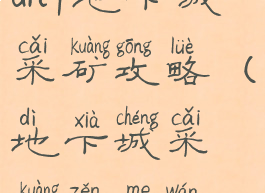 地下城
cǎi kuàng gōng lüè
采矿攻略（
dì xià chéng cǎi
地下城采
kuàng zěn me wán